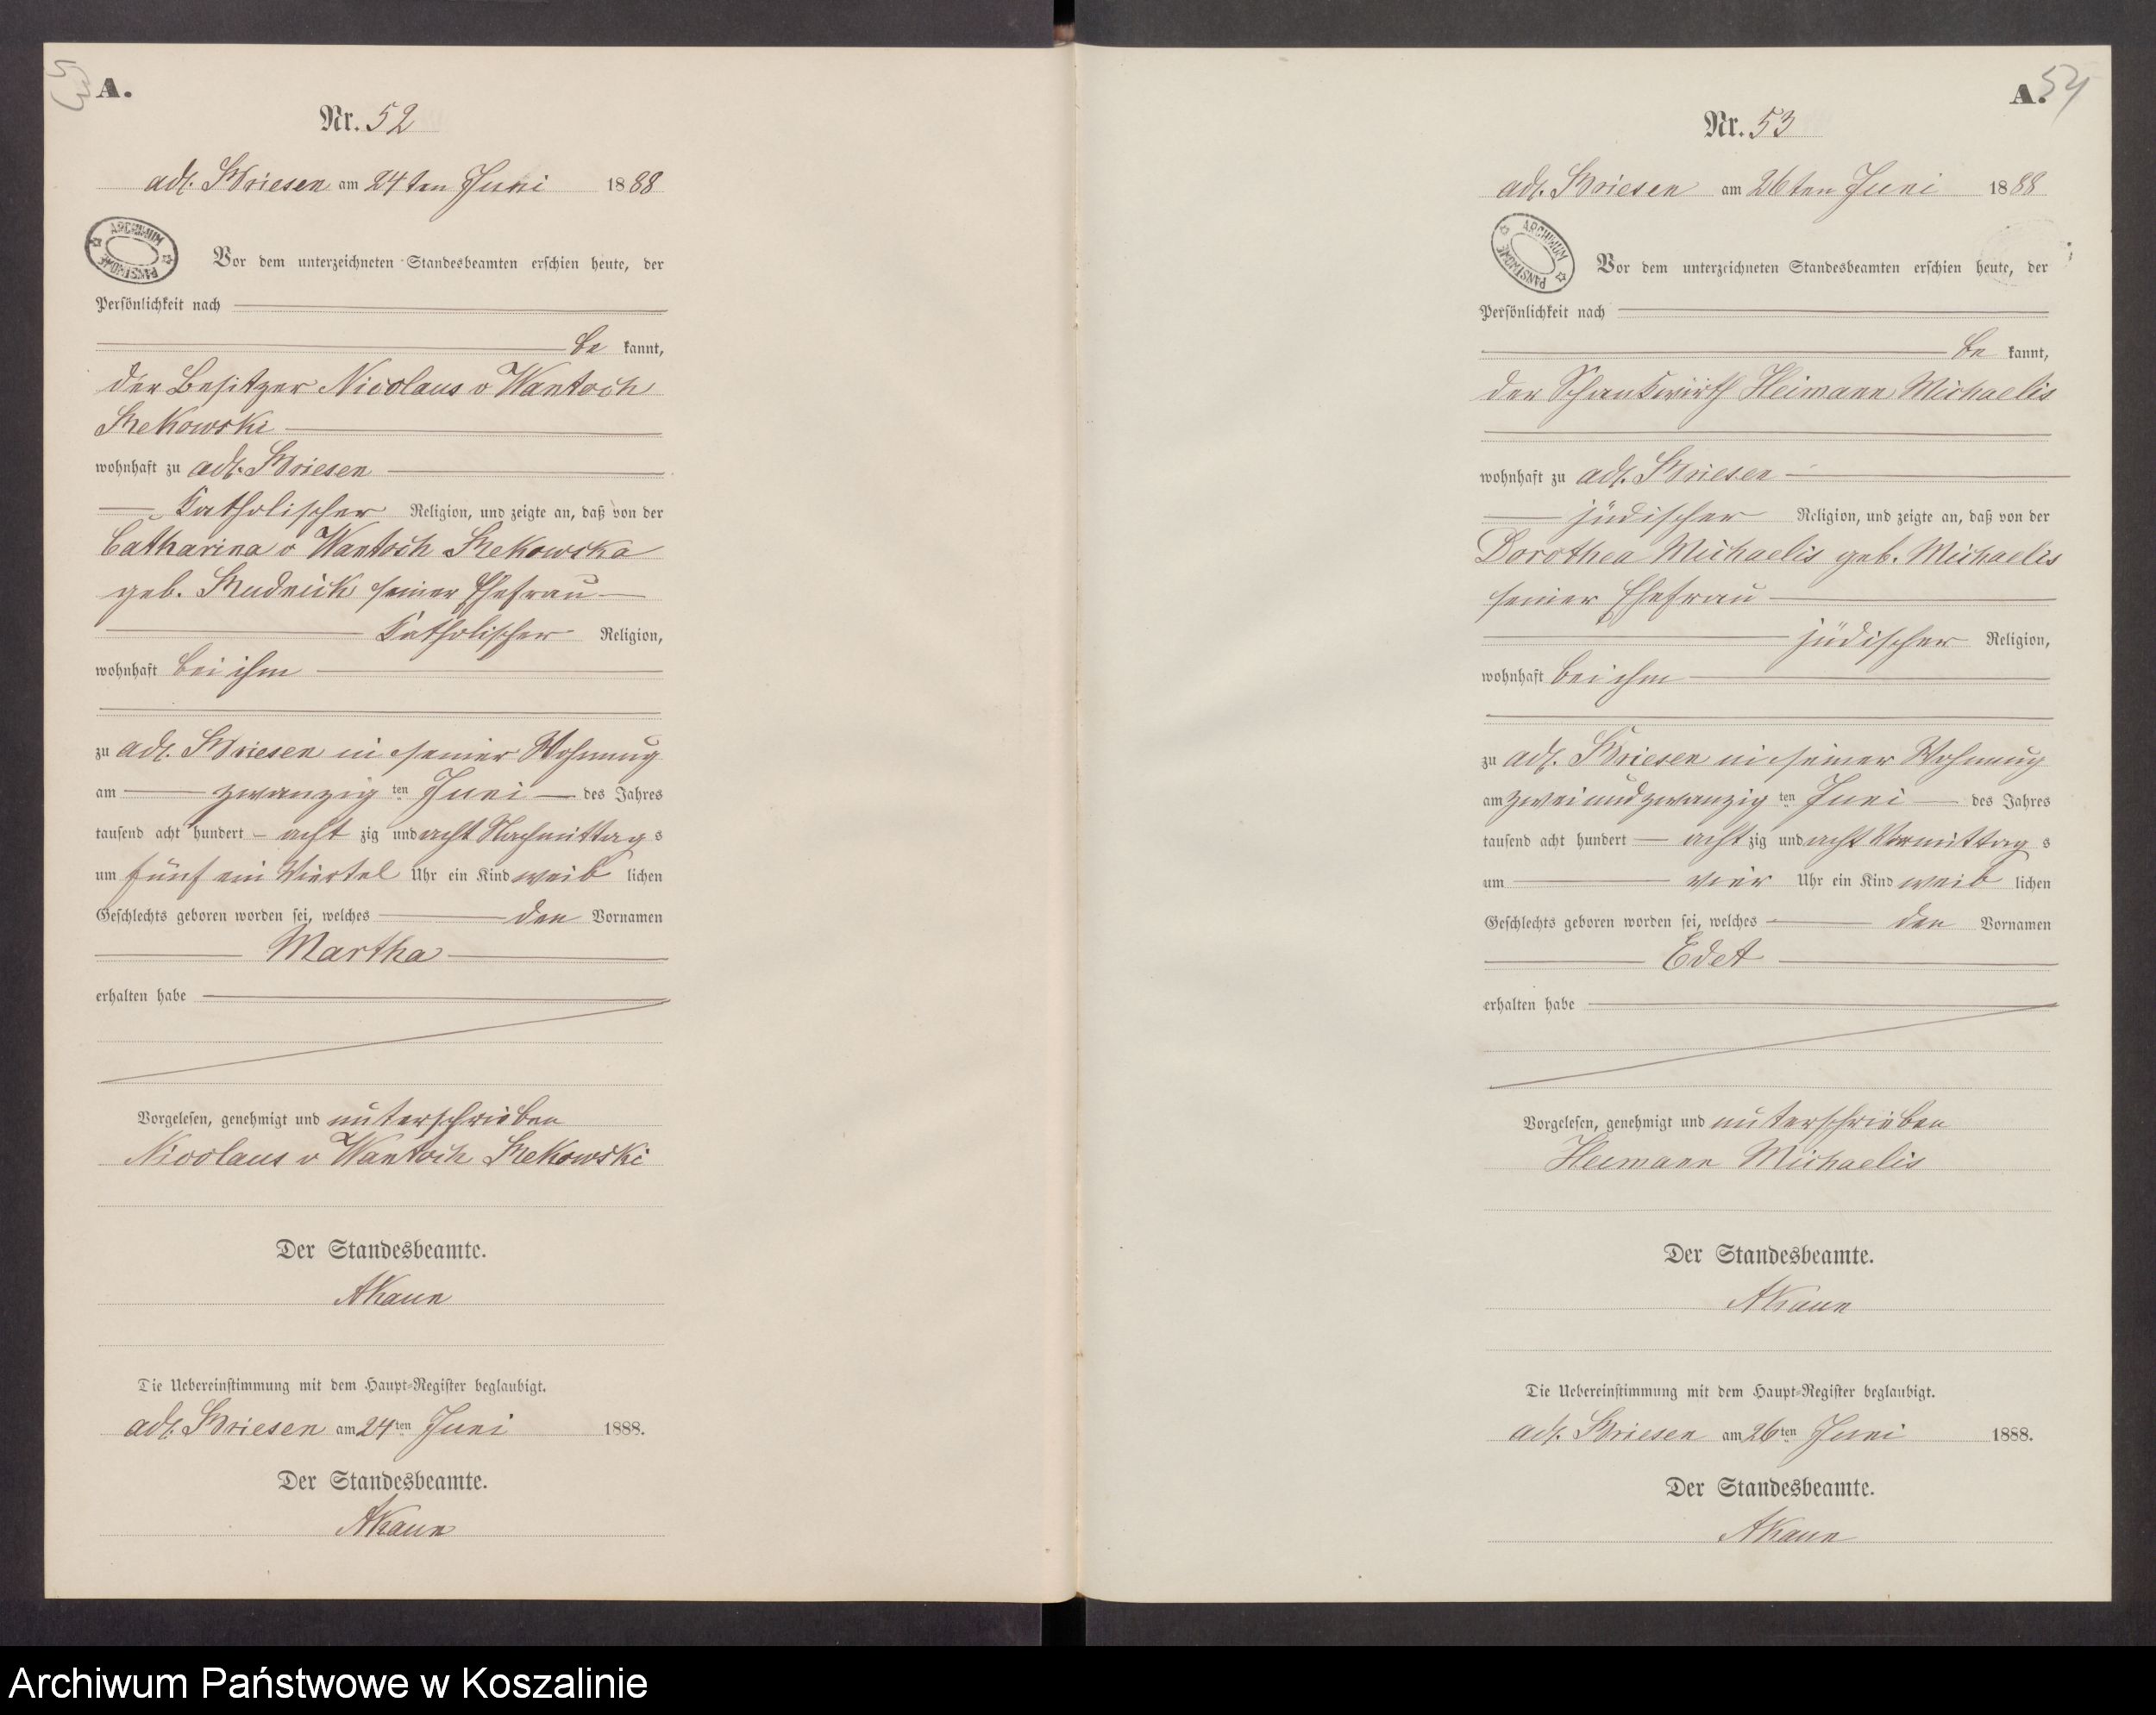 53
A.
Nr. 52
adl. Briesen am 24ten Juni 1888
ARCHIWUM PAŃSTWOWE
Vor dem unterzeichneten Standesbeamten erschien heute, der
Persönlichkeit nach
be kannt,
der Besitzer Nicolaus v Wantoch
Rekowski
wohnhaft zu adl. Briesen
katholischer Religion, und zeigte an, daß von der
Catharina v Wantoch Rekowska
geb. Rudnick seiner Ehefrau
katholischer Religion,
wohnhaft bei ihm
zu adl. Briesen in seiner Wohnung
am zwanzig ten Juni des Jahres
tausend acht hundert acht zig und acht Nachmittag s
um fünf ein Viertel Uhr ein Kind weib lichen
Geschlechts geboren worden sei, welches den Vornamen
Martha
erhalten habe
Vorgelesen, genehmigt und unterschrieben
Nicolaus v Wantoch Rekowski
Der Standesbeamte.
AKaun
Die Uebereinstimmung mit dem Haupt-Register beglaubigt.
adl. Briesen am 24ten Juni 1888.
Der Standesbeamte.
AKaun
A. 54
Nr. 53
adl. Briesen am 26ten Juni 1888
ARCHIWUM PAŃSTWOWE
Vor dem unterzeichneten Standesbeamten erschien heute, der
Persönlichkeit nach
be kannt,
der Schankwirth Heimann Michaelis
wohnhaft zu adl. Briesen
jüdischer Religion, und zeigte an, daß von der
Dorothea Michaelis geb. Michaelis
seiner Ehefrau
jüdischer Religion,
wohnhaft bei ihm
zu adl. Briesen in seiner Wohnung
am zwei und zwanzig ten Juni des Jahres
tausend acht hundert acht zig und acht Vormittag s
um vier Uhr ein Kind weib lichen
Geschlechts geboren worden sei, welches den Vornamen
Edet
erhalten habe
Vorgelesen, genehmigt und unterschrieben
Heimann Michaelis
Der Standesbeamte.
AKaun
Die Uebereinstimmung mit dem Haupt-Register beglaubigt.
adl. Briesen am 26ten Juni 1888.
Der Standesbeamte.
AKaun
Archiwum Państwowe w Koszalinie